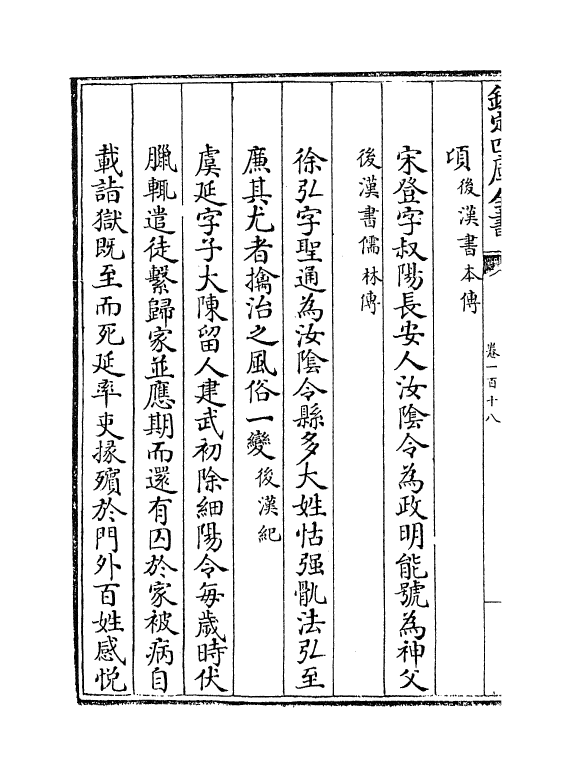 欽定四庫全書
卷一百十八
項後漢書本傳
宋登字叔陽長安人汝陰令為政明能號為神父
後漢書儒林傳
徐弘字聖通為汝陰令縣多大姓怙强骩法弘至
廉其尤者擒治之風俗一變後漢紀
虞延字子大陳留人建武初除細陽令每歲時伏
臘輒遣徒繫歸家並應期而還有囚於家被病自
載詣獄既至而死延率吏掾殯於門外百姓感悦